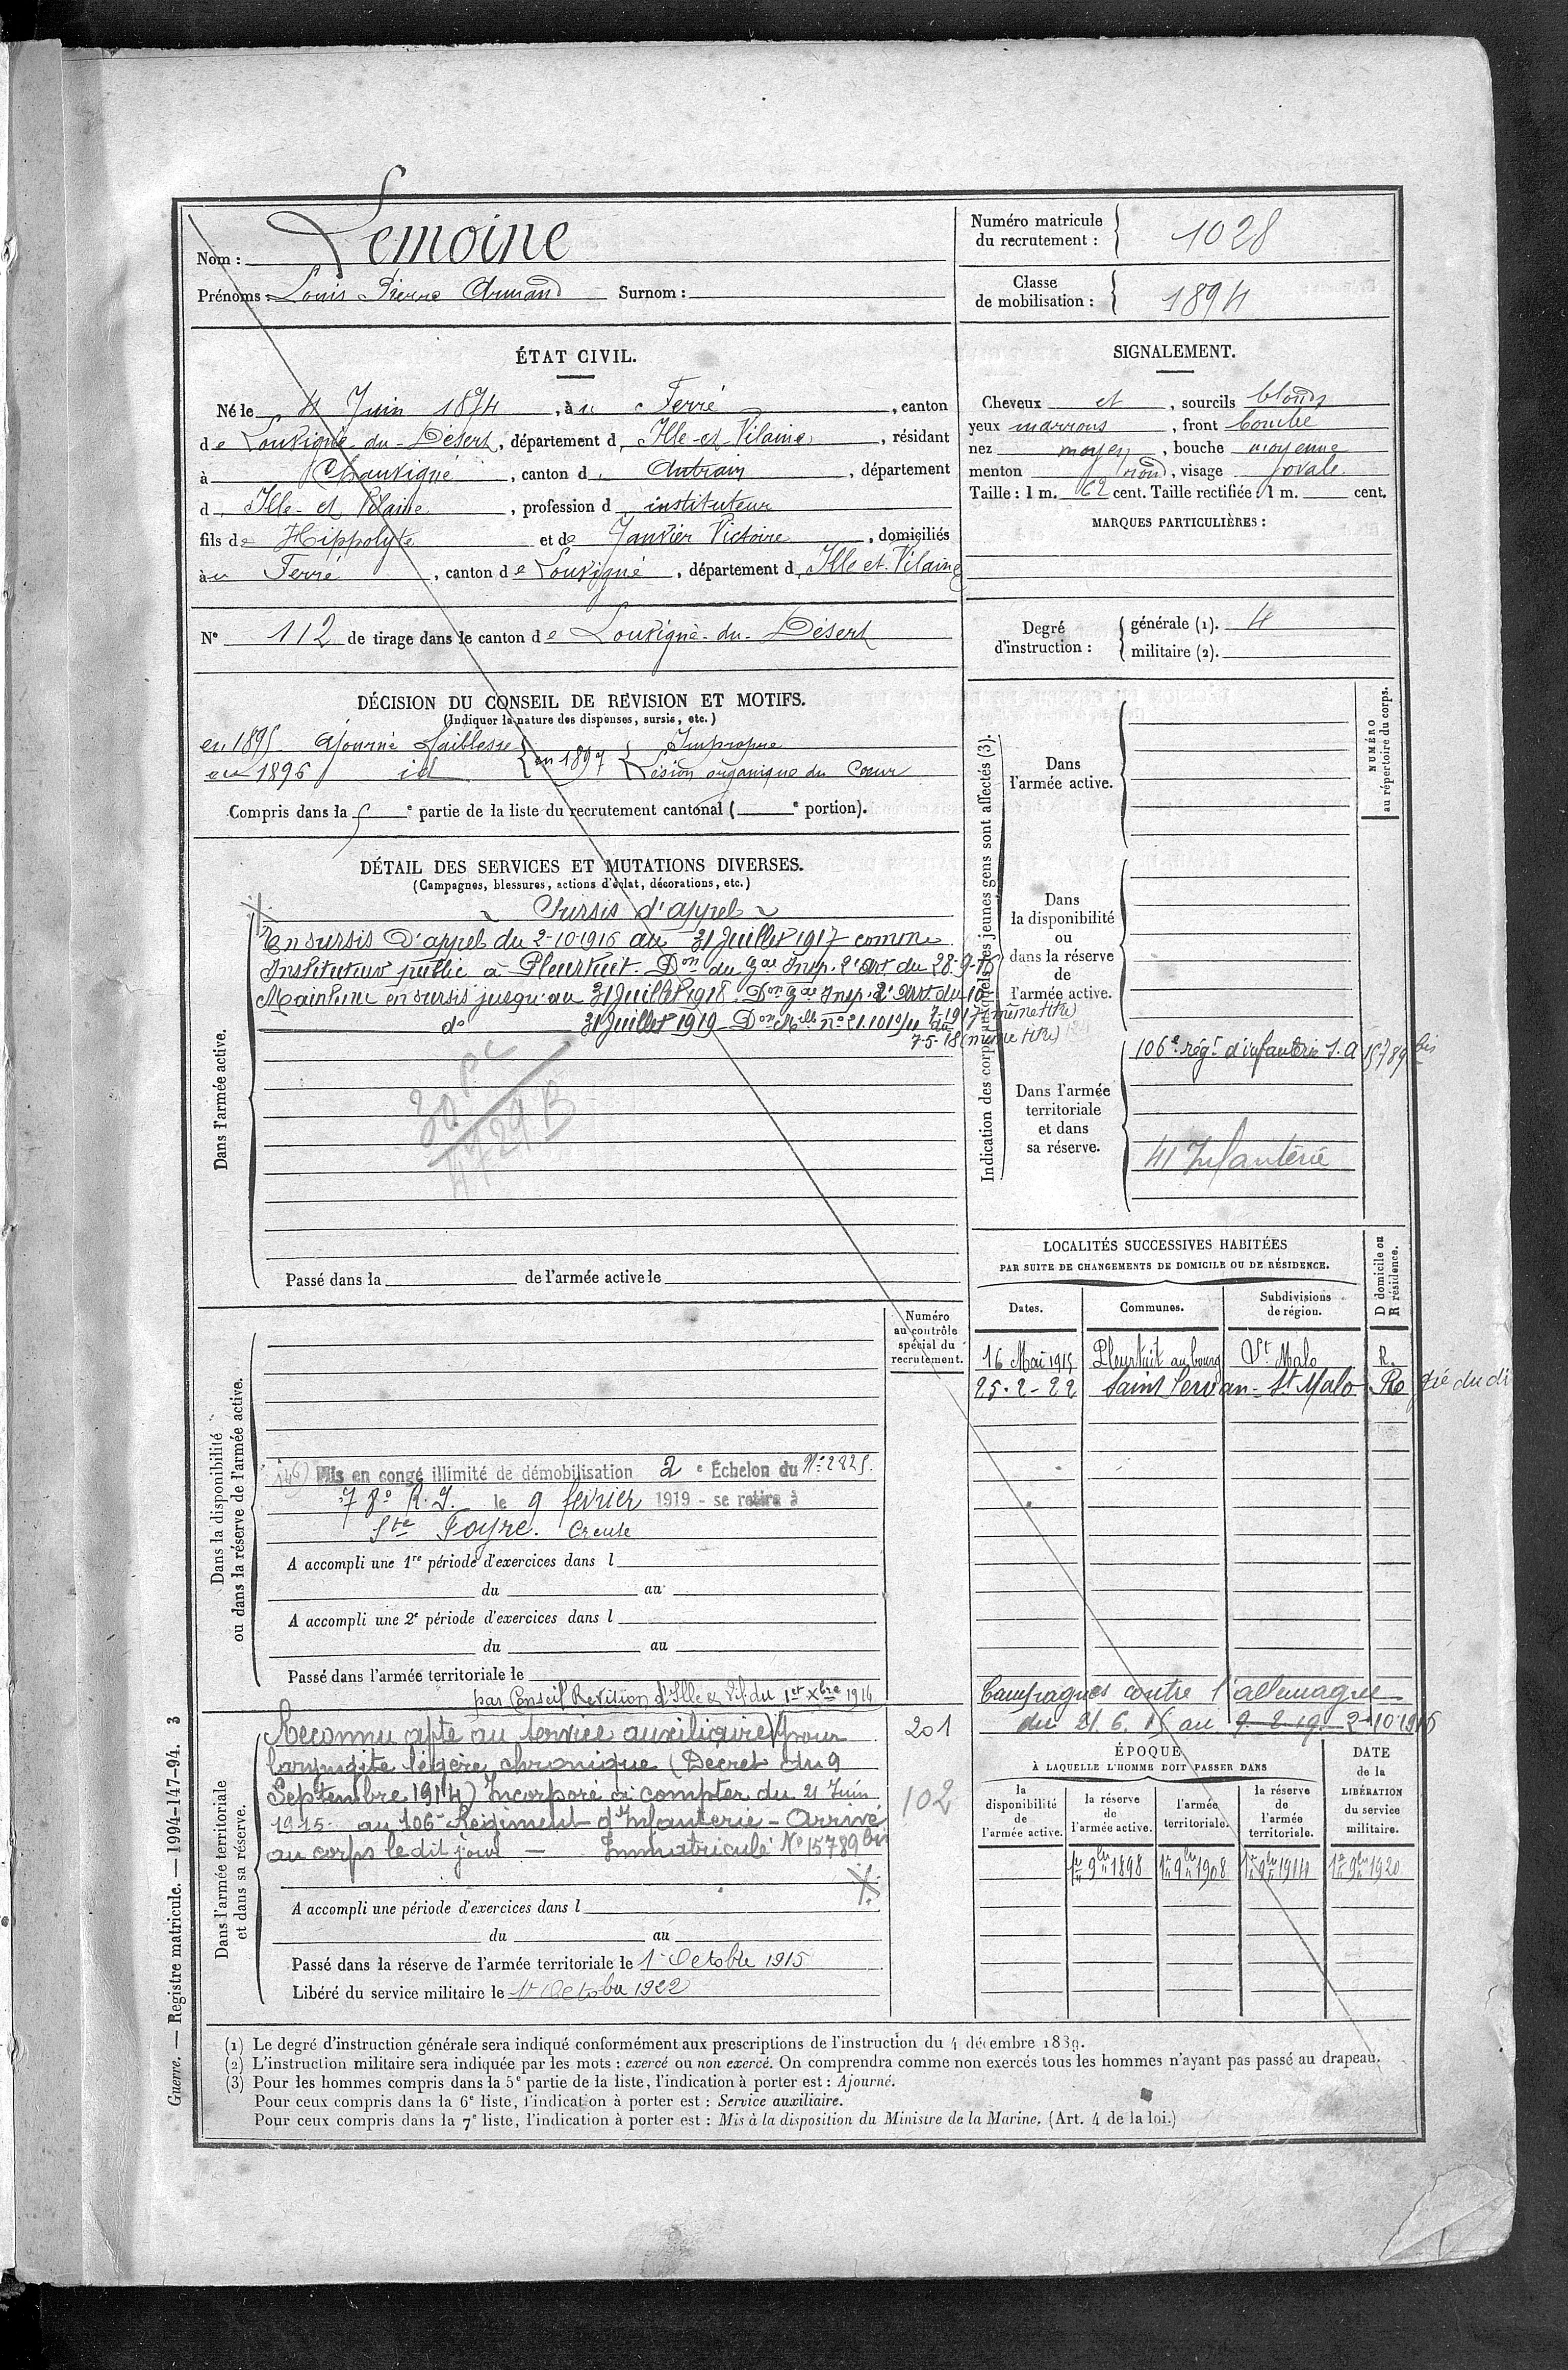 Nom : Lemoine
Prénoms : Louis Pierre Armand Surnom :
Numéro matricule
du recrutement : 1028
Classe
de mobilisation : 1894
ÉTAT CIVIL.
Né le 4 Juin 1874, à u Ferré, canton
de Louvigné-du-Désert, département d Ille-et-Vilaine, résidant
à Chauvigné, canton d Antrain, département
d Ille-et-Vilaine, profession d instituteur
fils de Hippolyte et de Janvier Victoire, domiciliés
au Ferré, canton de Louvigné, département d Ille-et-Vilaine
N° 112 de tirage dans le canton de Louvigné-du-Désert
SIGNALEMENT.
Cheveux et, sourcils blonds
yeux marrons, front
nez moyen, bouche moyenne
menton rond, visage ovale.
Taille : 1 m. 62 cent. Taille rectifiée : 1 m. cent.
MARQUES PARTICULIÈRES :
Degré
d'instruction :
générale (1). 4
militaire (2).
DÉCISION DU CONSEIL DE REVISION ET MOTIFS.
(Indiquer la nature des dispenses, sursis, etc.)
en 1895 Ajourné faiblesse
en 1896 id
en 1897 Impropre
Lésion organique du Cœur
Compris dans la 5 e partie de la liste du recrutement cantonal ( e portion).
DÉTAIL DES SERVICES ET MUTATIONS DIVERSES.
(Campagnes, blessures, actions d'éclat, décorations, etc.)
Dans l'armée active.
Sursis d'appel
En sursis d'appel du 2-10-1916 au 31 Juillet 1917 comme
Instituteur public à Pleurtuit. Don du Gal Insp. 2e Art du 28-9-16
Maintenu en sursis jusqu'au 31 Juillet 1918. Don Gal Insp. 2e Art du 10-
7-1917 (même titre)
do 31 Juillet 1919 - Don Mlle no 21.101 9/11 du
7-5-18 (même titre)
30 PC
4729 B
Passé dans la de l'armée active le
Indication des corps auxquels les jeunes gens sont affectés (3).
NUMÉRO
au répertoire du corps.
Dans
l'armée active.
Dans
la disponibilité
ou
dans la réserve
de
l'armée active.
Dans l'armée
territoriale
et dans
sa réserve.
106e régt d'infanterie S.A 15789 bis
41 Infanterie
LOCALITÉS SUCCESSIVES HABITÉES
PAR SUITE DE CHANGEMENTS DE DOMICILE OU DE RÉSIDENCE.
Dates. Communes. Subdivisions
de région. D domicile ou
R résidence.
16 Mai 1915 Pleurtuit au bourg St Malo R.
25-2-22 Saint Servan - St Malo Re
Numéro
au contrôle
spécial du
recrutement.
Dans la disponibilité
ou dans la réserve de l'armée active.
146) Mis en congé illimité de démobilisation 2 e Échelon du N° 2825.
78e R.I. le 9 février 1919 - se retire à
Ste Feyre. Creuse
A accompli une 1re période d'exercices dans l
du au
A accompli une 2e période d'exercices dans l
du au
Passé dans l'armée territoriale le
Dans l'armée territoriale
et dans sa réserve.
par Conseil Revision d'Ille & Vil. du 1er Xbre 1914
Reconnu apte au service auxiliaire pour
laryngite légère chronique (Décret du 9
Septembre 1914) Incorporé à compter du 21 Juin
1915 au 106e Régiment d'Infanterie - Arrivé
au corps le dit jour - Immatriculé N° 15789 bis
201
102
A accompli une période d'exercices dans l
du au
Passé dans la réserve de l'armée territoriale le 1er Octobre 1915
Libéré du service militaire le 1er Octobre 1922
Campagnes contre l'Allemagne
du 21. 6. 15 au 9-2-19. 2-10-1916
ÉPOQUE
À LAQUELLE L'HOMME DOIT PASSER DANS
la
disponibilité
de
l'armée active.
la réserve
de
l'armée active.
l'armée
territoriale.
la réserve
de
l'armée
territoriale.
DATE
de la
LIBÉRATION
du service
militaire.
1er 9bre 1898 1er 9bre 1908 1er 9bre 1914 1er 9bre 1920
(1) Le degré d'instruction générale sera indiqué conformément aux prescriptions de l'instruction du 4 décembre 1889.
(2) L'instruction militaire sera indiquée par les mots : exercé ou non exercé. On comprendra comme non exercés tous les hommes n'ayant pas passé au drapeau.
(3) Pour les hommes compris dans la 5e partie de la liste, l'indication à porter est : Ajourné.
Pour ceux compris dans la 6e liste, l'indication à porter est : Service auxiliaire.
Pour ceux compris dans la 7e liste, l'indication à porter est : Mis à la disposition du Ministre de la Marine. (Art. 4 de la loi.)
Guerre. — Registre matricule. — 1994-147-94. 3